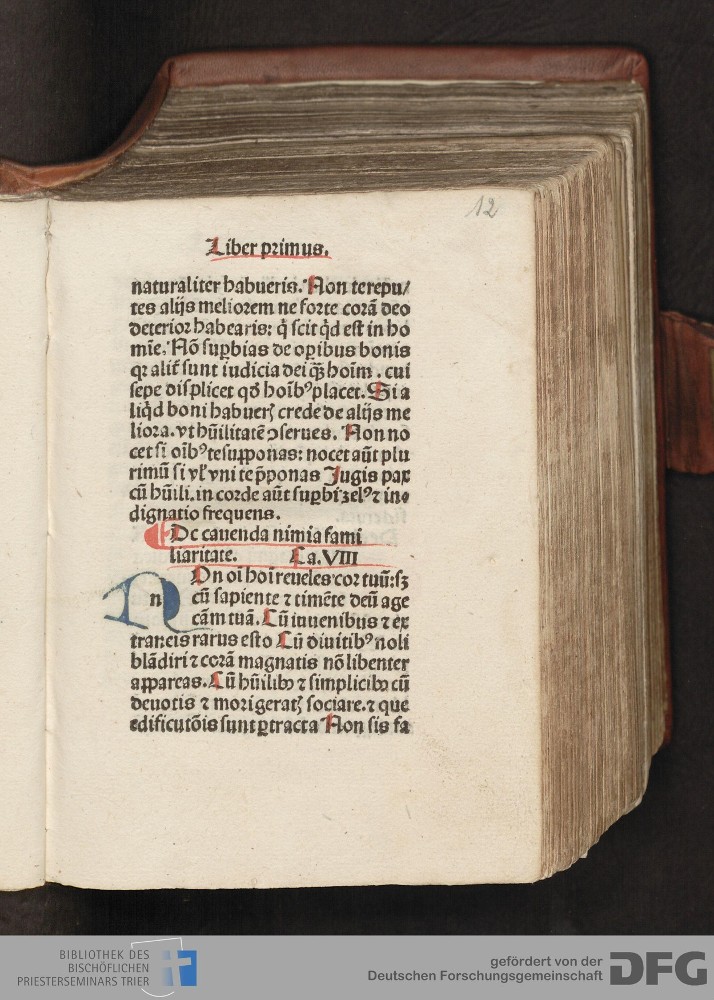 12
Liber primus.
naturaliter habueris. Non te repu/
tes alijs meliorem ne forte corã deo
deterior habearis: q̇ scit qd̓ est in ho
mĩe. Nõ suꝑbias de oꝑibus bonis
qꝛ alit̃ sunt iudicia dei q̃ȝ hoĩm. cui
sepe displicet qd̓ hoĩbꝰ placet. Si a
liqd̓ boni habuerꝭ crede de alijs me
liora. vt hũilitatẽ ꝯserues. Non no
cet si oĩbꝰ te supponas: nocet aũt plu
rimũ si vl̓ vni te p̃ponas Jugis pax
cũ hũili. in corde aũt suꝑbi zelꝰ ⁊ in
dignatio frequens.
De cauenda nimia fami
liaritate. Ca. VIII
n On oĩ hoĩ reueles cor tuũ: sȝ
cũ sapiente ⁊ timẽte deũ age
cãm tuã. Cũ iuuenibus ⁊ ex
traneis rarus esto Cũ diuitibꝰ noli
blãdiri ⁊ corã magnatis nõ libenter
appareas. Cũ hũilibꝰ ⁊ simplicibꝰ cũ
deuotis ⁊ morigeratꝭ sociare. ⁊ que
edificatõis sunt ꝑtracta Non sis fa
BIBLIOTHEK DES
BISCHÖFLICHEN
PRIESTERSEMINARS TRIER
gefördert von der
Deutschen Forschungsgemeinschaft
DFG